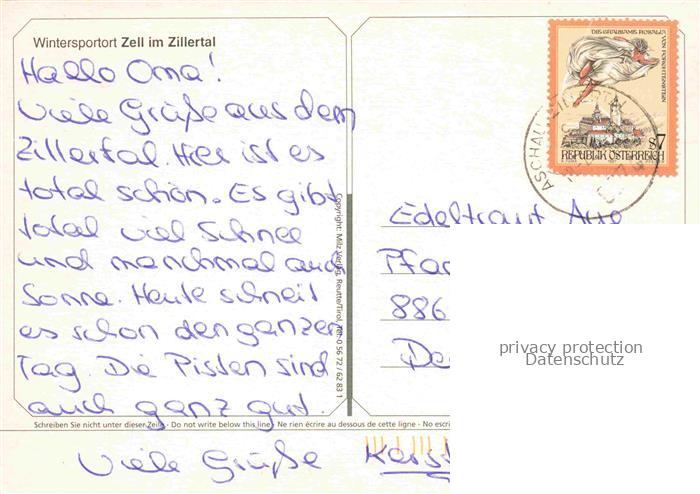 Wintersportort Zell im Zillertal
Hallo Oma!
Viele Grüße aus dem
Zillertal. Hier ist es
total schön. Es gibt
total viel Schnee
und manchmal auch
Sonne. Heute schneit
es schon den ganzen
Tag. Die Pisten sind
auch ganz gut.
Schreiben Sie nicht unter dieser Zeile · Do not write below this line · Ne rien écrire au dessous de cette ligne · No escri
Viele Grüße Kerst
Copyright: Milz Verlag, Reutte/Tirol, Tel. 0 56 72 / 62 83 1
DIE GRAUSAME ROSALIA VON FORCHTENSTEIN
S7
REPUBLIK ÖSTERREICH
ASCHAU
Edeltraut
Pfar
886
De
privacy protection
Datenschutz